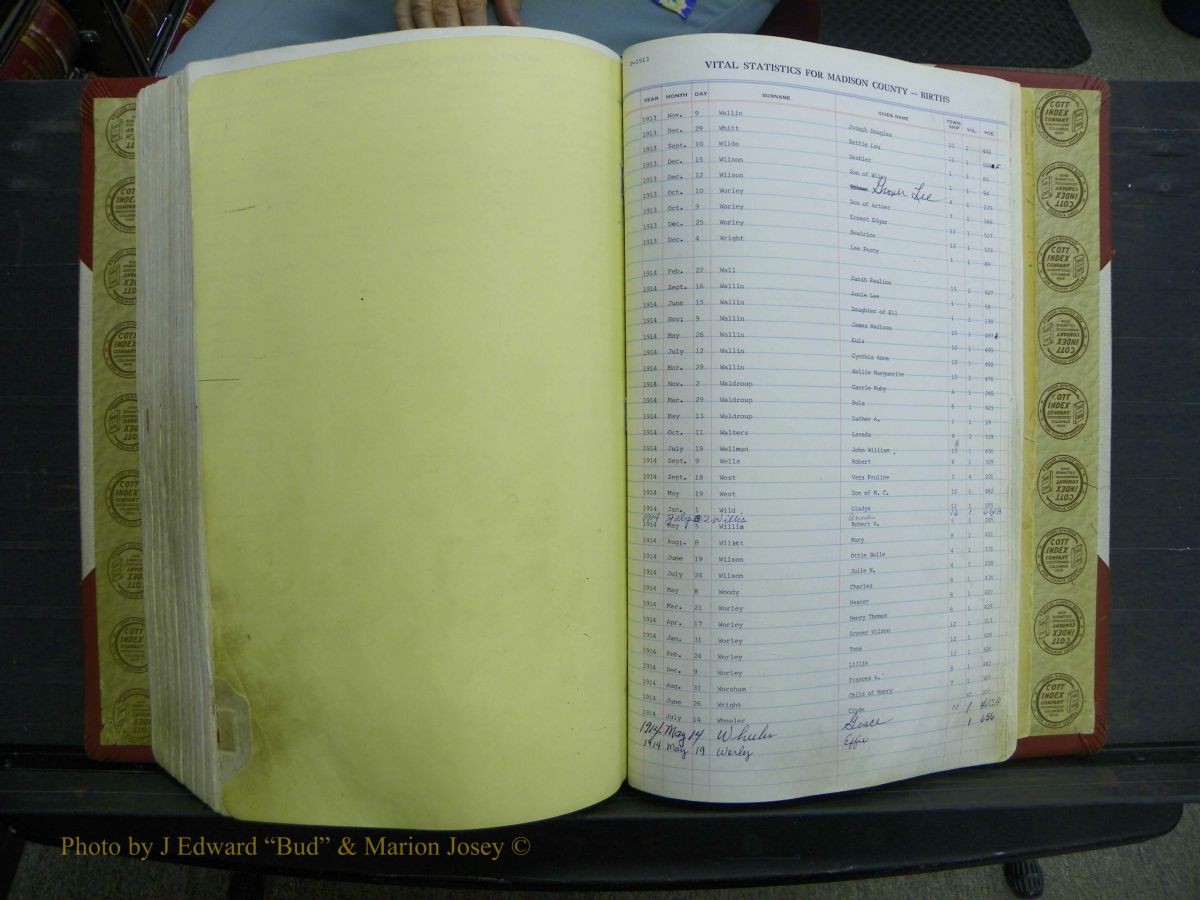 P-1913
VITAL STATISTICS FOR MADISON COUNTY — BIRTHS
YEAR MONTH DAY SURNAME GIVEN NAME TOWN-SHIP VOL. PGE.
1913 Nov. 9 Wallin Joseph Douglas 10 1 464
1913 Dec. 29 Whitt Bettie Lou 11 1
1913 Sept. 10 Wilde Dashler 1 1 85
1913 Dec. 15 Wilson Son of Wiley 1 1 94
1913 Dec. 12 Wilson Grover Lee 4 1 220
1913 Oct. 10 Worley Son of Arthur 3 1 346
1913 Oct. 9 Worley Ernest Edgar 12 1 517
1913 Dec. 25 Worley Beatrice 12 1 523
1913 Dec. 4 Wright Lee Parcy 1 1 89
1914 Feb. 22 Wall Sarah Pauline 15 1 627
1914 Sept. 16 Wallin Annie Lee 1 1 59
1914 June 15 Wallin Daughter of Eli 1 1 138
1914 Nov; 9 Wallin James Madison 10 1 497A
1914 May 26 Wallin Eula 10 1 495
1914 July 12 Wallin Cynthia Anna 10 1 492
1914 Mar. 29 Wallin Nellie Marguritte 10 1 476
1918 Nov. 2 Waldroup Carrie Ruby 4 1 245
1914 Mar. 29 Waldroup Bula 6 1 423
1914 May 13 Waldroup Luther A. 1 1 19
1914 Oct. 11 Walters Lavada 9 2 519
1914 July 19 Wellman John William 15 1 630
1914 Sept. 9 Wells Robert 6 1 529
1914 Sept. 18 West Vera Pauline 3 4 201
1914 May 19 West Son of M. C. 10 1 482
1914 Jan. 1 Wild Gladys 12 1 505
1914 July 2 Willis Anna 16 1 624A
1914 May 5 Willis Robert W. 5 1 285
1914 Aug. 8 Willett Mary 8 1 451
1914 June 19 Wilson Ottie Belle 4 1 231
1914 July 24 Wilson Julie N. 4 1 238
1914 May 8 Woody Charles 8 1 434
1914 Mar. 21 Worley Hester 8 1 422
1914 Apr. 17 Worley Henry Thomas 8 1 429
1914 Jan. 31 Worley Grover Vilson 12 1 513
1914 Feb. 24 Worley Tena 12 1 508
1914 Dec. 9 Worley Lillie 12 1
1914 Aug. 31 Worsham Frances A. 8 1 461
1914 June 26 Wright Child of Henry 7 1 307
1914 July 14 Wheeler Clyde 207
1914 May 14 Wheeler Grace 11 1 412A
1914 May 19 Worley Effie 1 656
COTT INDEX COMPANY COLUMBUS OHIO
Photo by J Edward “Bud” & Marion Josey ©